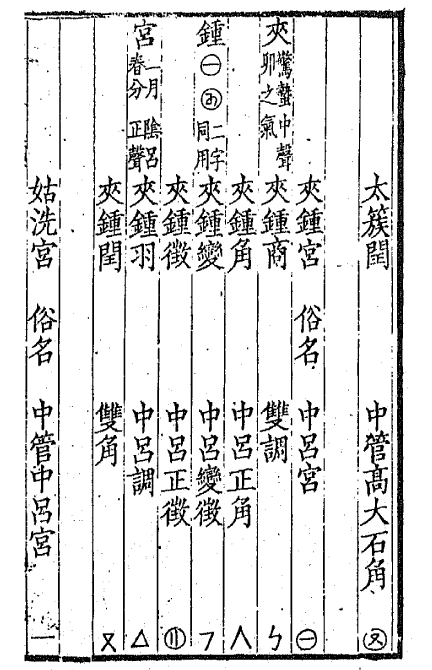 太簇閏 中管高大石角
夾鍾宮 俗名 中呂宮 ㊀
夾 驚蟄中聲 卯之氣 夾鍾商 雙調 ㄣ
夾鍾角 中呂正角 人
鍾 ㊀ 二字同用 夾鍾變 中呂變徵 フ
夾鍾徵 中呂正徵
宮 二月陰呂 春分正聲 夾鍾羽 中呂調 △
夾鍾閏 雙角 ヌ
姑洗宮 俗名 中管中呂宮 一